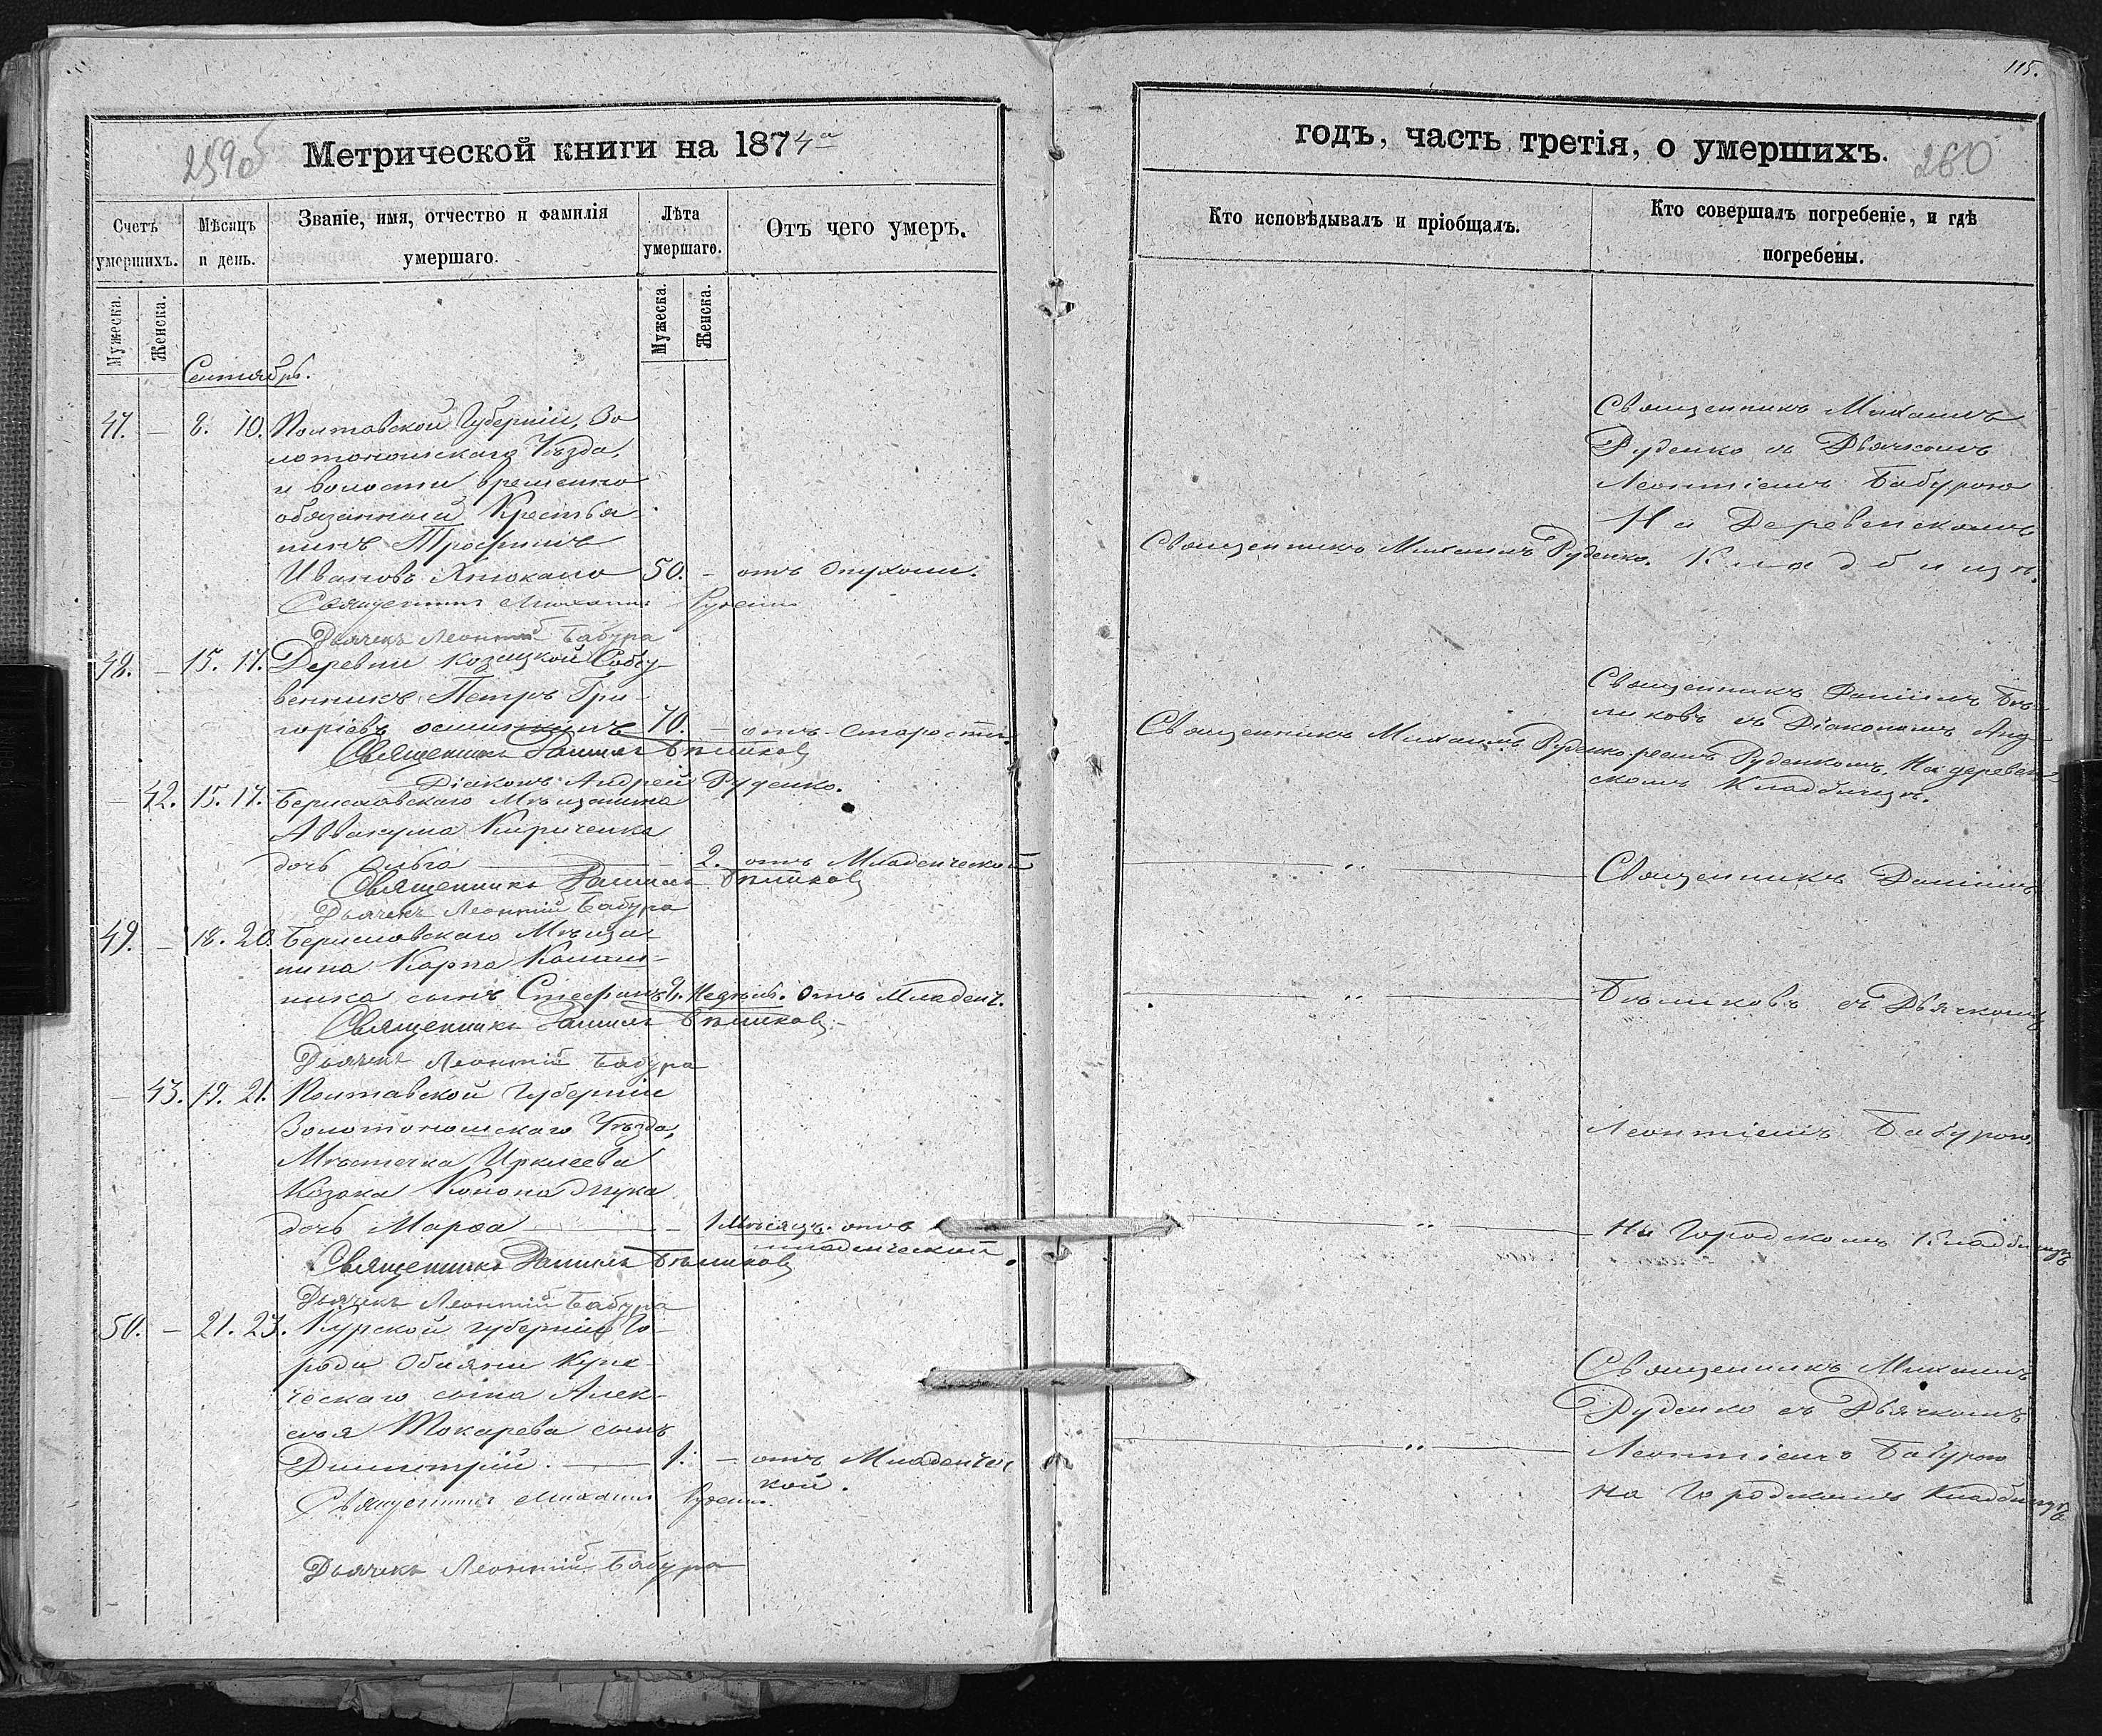 115.
259об
Метрической книги на 1874а
годъ, часть третія, о умершихъ.
260
Счетъ умершихъ.
Мѣсяцъ и день.
Званіе, имя, отчество и фамилія умершаго.
Лѣта умершаго.
Отъ чего умеръ.
Кто исповѣдывалъ и пріобщалъ.
Кто совершалъ погребеніе, и гдѣ погребены.
Мужеска.
Женска.
Мужеска.
Женска.
Сентябрь.
47. — 8. 10. Полтавской Губерніи, Зо
лотоношскаго Уѣзда,
и волости временно
обязанный Крестья
нинъ Трофимъ
Ивановъ 50. — отъ Опухоли.
Священникъ Михаилъ Руденко
Дьячекъ Леонтій Бабура
48. — 15. 17. Деревни Козацкой Собст
венникъ Петръ Гри
горіевъ 70. — отъ Старости.
Священникъ Даніилъ Бѣликовъ
Діаконъ Андрей Руденко.
— 42. 15. 17. Бериславскаго Мѣщанина
Аввакума Кириченка
дочь Ольга — 2. отъ Младенческой
Священникъ Даніилъ Бѣликовъ
Дьячекъ Леонтій Бабура
49. — 18. 20. Бериславскаго Мѣща
нина Карпа
ника сынъ Стефанъ 2. Недѣль. Отъ Младенч.
Священникъ Даніилъ Бѣликовъ
Дьячекъ Леонтій Бабура
— 43. 19. 21. Полтавской Губерніи
Золотоношскаго Уѣзда,
Мѣстечка Ирклеева
Козака Конона
дочь Марѳа — 1 Мѣсяцъ. отъ
младенческой
Священникъ Даніилъ Бѣликовъ
Дьячекъ Леонтій Бабура
50. — 21. 23. Курской губерніи Го
рода Обояни Купе
ческаго сына Алек
сѣя Токарева сынъ
Димитрій. — 1. — отъ Младенчес
кой.
Священникъ Михаилъ Руденко
Дьячекъ Леонтій Бабура
Священникъ Михаилъ Руденко.
Священникъ Михаилъ
Руденко съ Дьячкомъ
Леонтіемъ Бабурою
На Деревенскомъ
Кладбищѣ.
Священникъ Михаилъ Руденко
Священникъ Даніилъ Бѣ
ликовъ съ Діакономъ Анд
реемъ Руденкомъ, На деревен
скомъ Кладбищѣ.
— „ — Священникъ Даніилъ
— „ — Бѣликовъ съ Дьячкомъ
Леонтіемъ Бабурою
— „ — На Городскомъ Кладбищѣ
Священникъ Михаилъ
Руденко съ Дьячкомъ
— „ — Леонтіемъ Бабурою
на Городскомъ Кладбищѣ